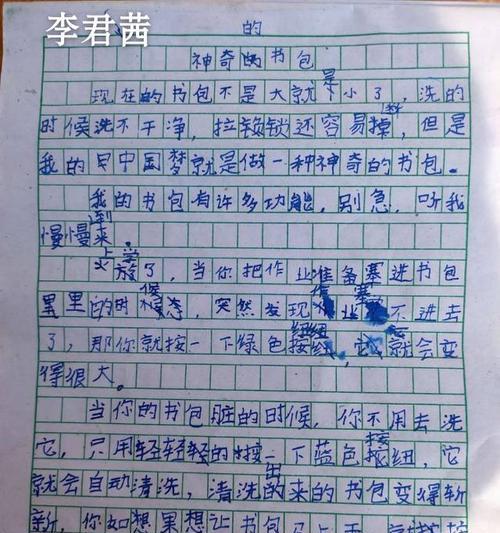 李君茜
的
神奇的书包
现在的书包不是大就是小了，洗的
时候洗不干净，拉锁锁还容易掉，但是
我的中国梦就是做一种神奇的书包。
我的书包有许多功能，别急，听我
慢慢道来。
上学
放了，当你把作业准备塞进书包
里的时候，突然发现作业塞不进去
了，那你就按一下绿色按钮，它就会变
得很大。
当你的书包脏的时候，你不用去洗
它，只用轻轻轻的按一下蓝色按钮，它
就会自动清洗，清洗出的来的书包变得斩
新，你如想果想让书包马上干，就按